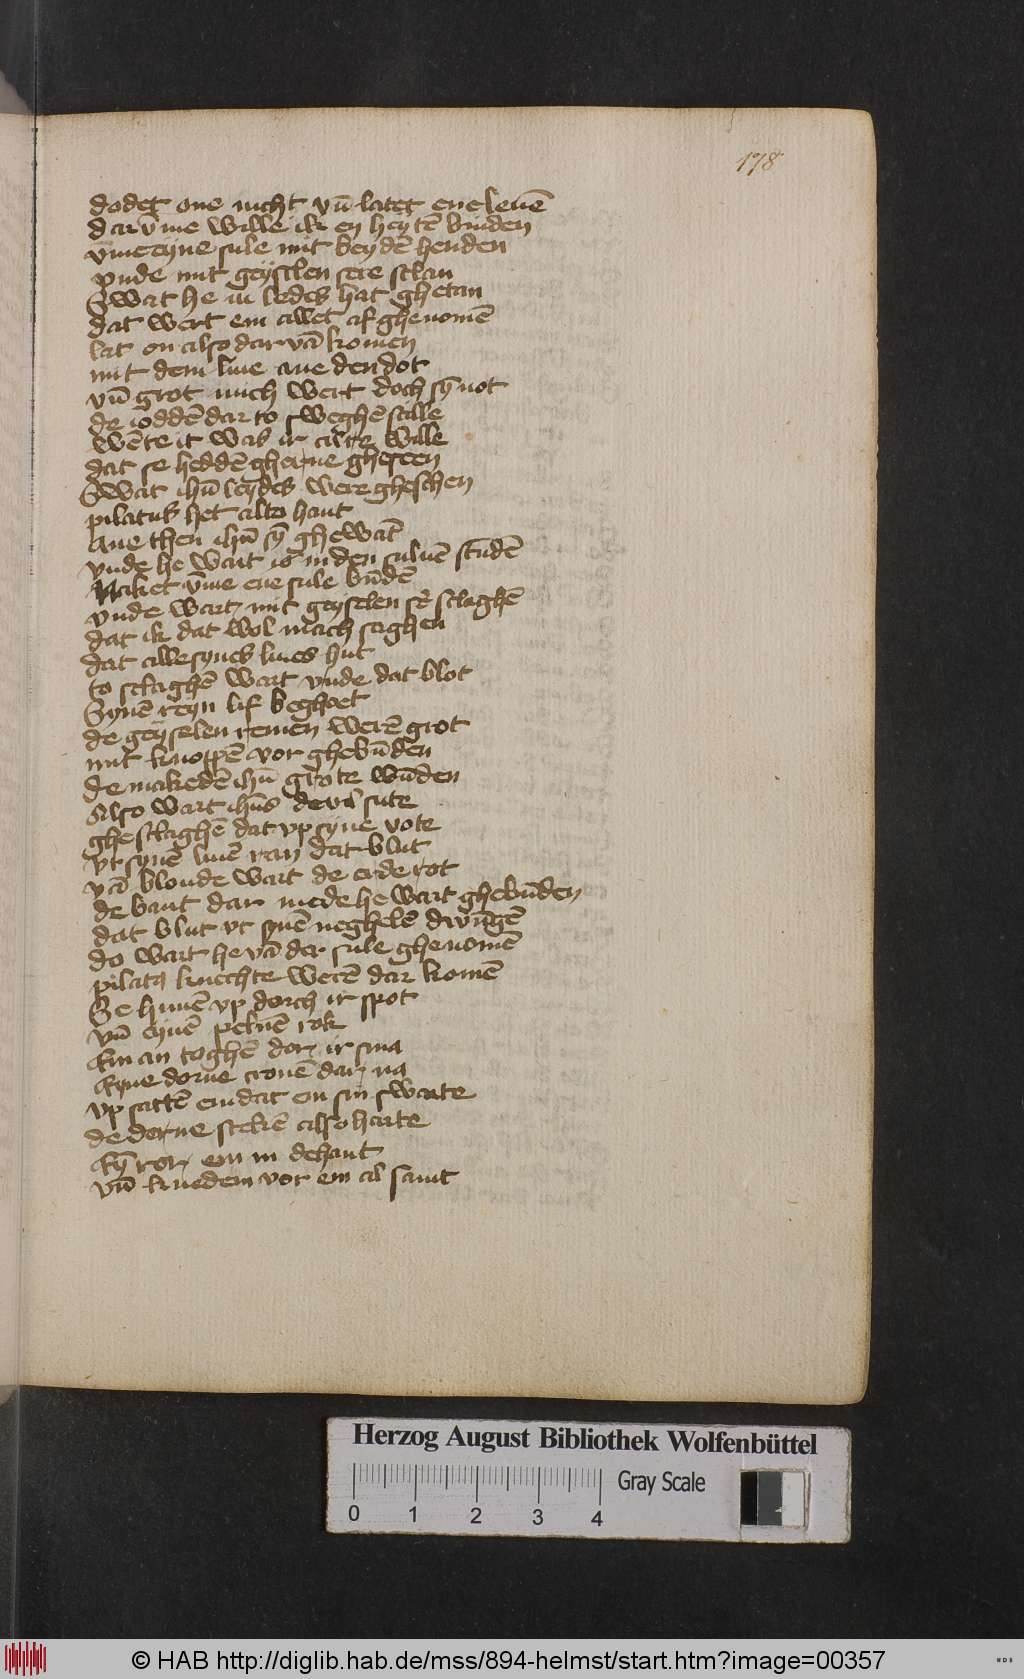 178
dodet one nicht vn̄ latet ene leuē
dar v̄me wille ik en heytē binden
v̄me eyne sule mit beydē henden
vnde mit geyselen sere sclan
Swat he in ledes hat ghetan
dat wert em allet af ghenomē
lat on also dar vā komen
mit dem liue ane den dot
vn̄ grot mich wert doch sȳ not
de ioddē dar to sweghē stille
wēte it was ir alre wille
dat se heddē gherne gheseen
Swat ihū leydes were gheschen
pilatus het alto hant
Aue then ihū sȳ ghewāt
vnde he wart in den suluē stūdē
Naket v̄me ene sule būdē
vnde wart mit geyselen sē sclaghē
dat ik dat wol mach saghen
dat alle synes liues hut
to sclaghē wart vnde dat blot
Synē reyn lif beghoet
de geyselen remen werē grot
mit knoppē vor ghebūden
de makedē ihū grote wūden
Also wart ihūs de vil sute
ghesclaghē dat vp syne vote
vt synē liuē ran dat blut
vā bloude wart de erde rot
de bant dar mede he wart ghebūden
dat blut vt synē neghelē dwūgē
do wart he vā der sule ghenomē
pilatꝯ knechte werē dar komē
Se huuē vp dorch ir spot
vn̄ eynē pelnē rok
Em an toghē dor ir sma
Eyne dorne cronē dar na
vp sattē em dat em sin swarte
de dorne stekē also harte
Eȳ ror em in de hant
vn̄ knedem vor em al samt
Herzog August Bibliothek Wolfenbüttel
Gray Scale
0 1 2 3 4
© HAB http://diglib.hab.de/mss/894-helmst/start.htm?image=00357